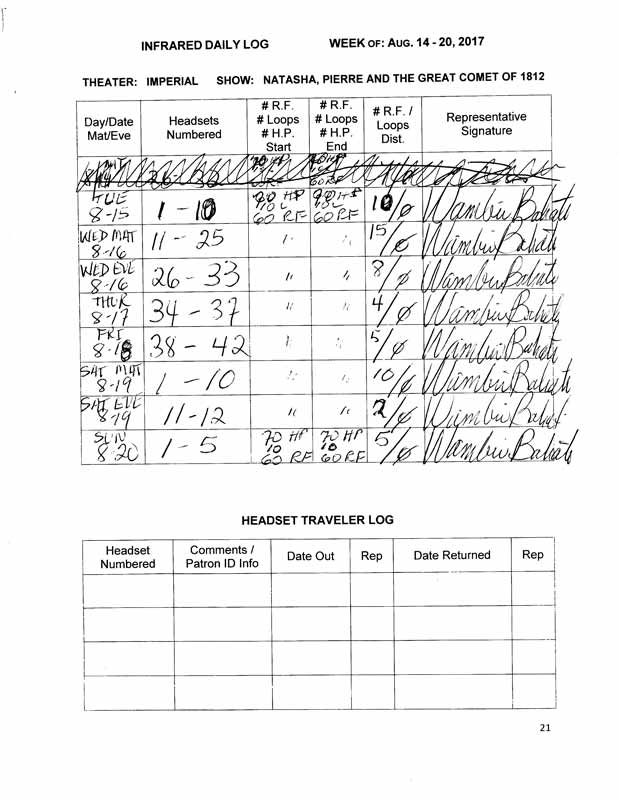 INFRARED DAILY LOG WEEK OF: AUG. 14 - 20, 2017
THEATER: IMPERIAL SHOW: NATASHA, PIERRE AND THE GREAT COMET OF 1812
Day/Date
Mat/Eve
Headsets
Numbered
# R.F.
# Loops
# H.P.
Start
# R.F.
# Loops
# H.P.
End
# R.F. /
Loops
Dist.
Representative
Signature
TUE
8-15
1 - 10
HP
10 L
60 RF
HP
10 L
60 RF
10/0
Wambui Bahati
WED MAT
8-16
11 - 25
"
"
15/0
Wambui Bahati
WED EVE
8-16
26 - 33
"
"
8/0
Wambui Bahati
THUR
8-17
34 - 37
"
"
4/0
Wambui Bahati
FRI
8-18
38 - 42
"
"
5/0
Wambui Bahati
SAT MAT
8-19
1 - 10
"
"
10/0
Wambui Bahati
SAT EVE
8-19
11-12
"
"
2/0
Wambui Bahati
SUN
8-20
1 - 5
70 HP
10
60 RF
70 HP
10
60 RF
5/0
Wambui Bahati
HEADSET TRAVELER LOG
Headset
Numbered
Comments /
Patron ID Info
Date Out
Rep
Date Returned
Rep
21